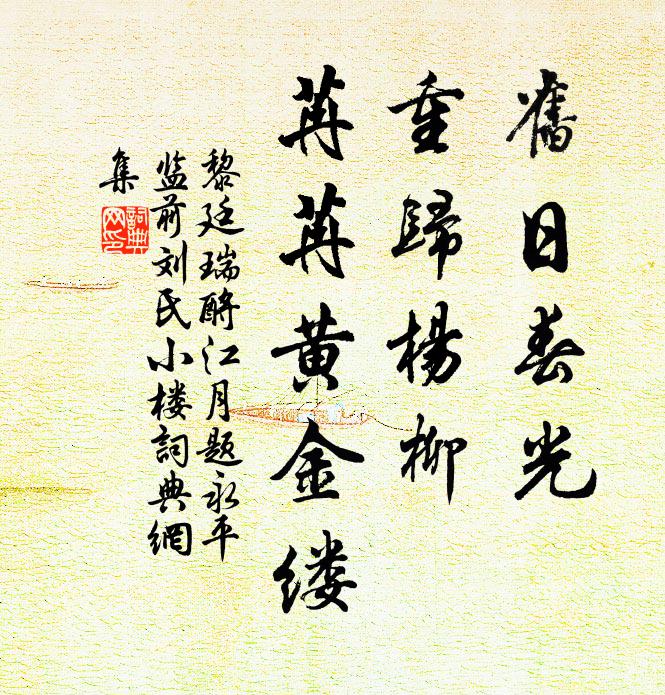 舊日春光
重歸楊柳
苒苒黄金缕
黎廷瑞酹江月题永平
监前刘氏小楼詞典網
集
詞典
网印